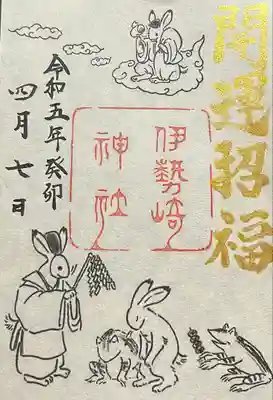 開運招福
伊勢崎
神社
令和五年癸卯
四月七日